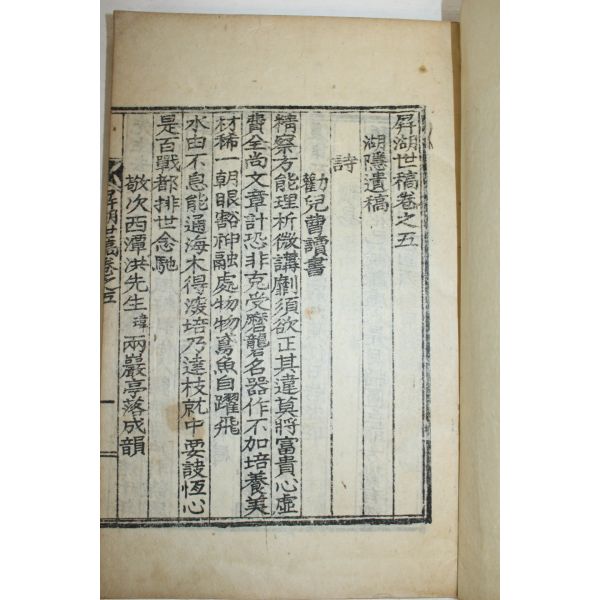 屛湖世稿卷之五
湖隱遺稿
詩
勸兒曹讀書
精察方能理析微講劘須欲正其違莫將富貴心虛
費全尚文章計恐非克受磨礱名器作不加培養美
材稀一朝眼豁神融處物物鳶魚自躍飛
水由不息能通海木得滋培乃達枝就中要訣恆心
是百戰都排世念馳
敬次西潭洪先生瑋兩巖亭落成韻
屛湖世稿卷之五